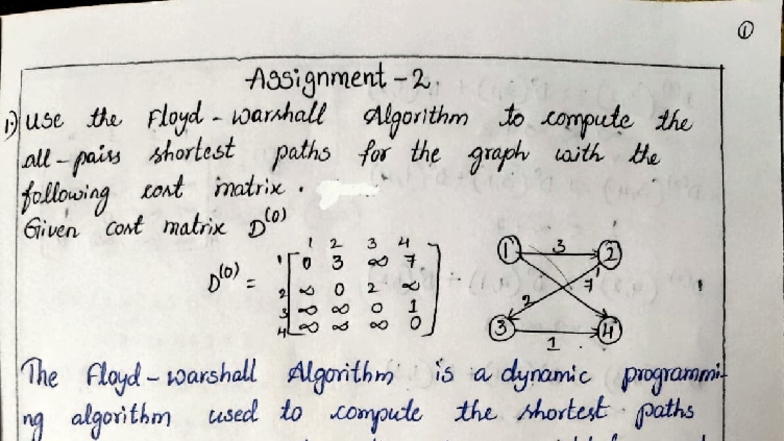 ①
Assignment - 2.
1.) Use the Floyd - warshall Algorithm to compute the
all - pairs shortest paths for the graph with the
following cost matrix .
Given cost matrix D^(0)
1 2 3 4
D^(0) =
1 0 3 ∞ 7
2 ∞ 0 2 ∞
3 ∞ ∞ 0 1
4 ∞ ∞ ∞ 0
1 3 2
2 7
3 1 4
The Floyd - warshall Algorithm is a dynamic programmi-
ng algorithm used to compute the shortest paths